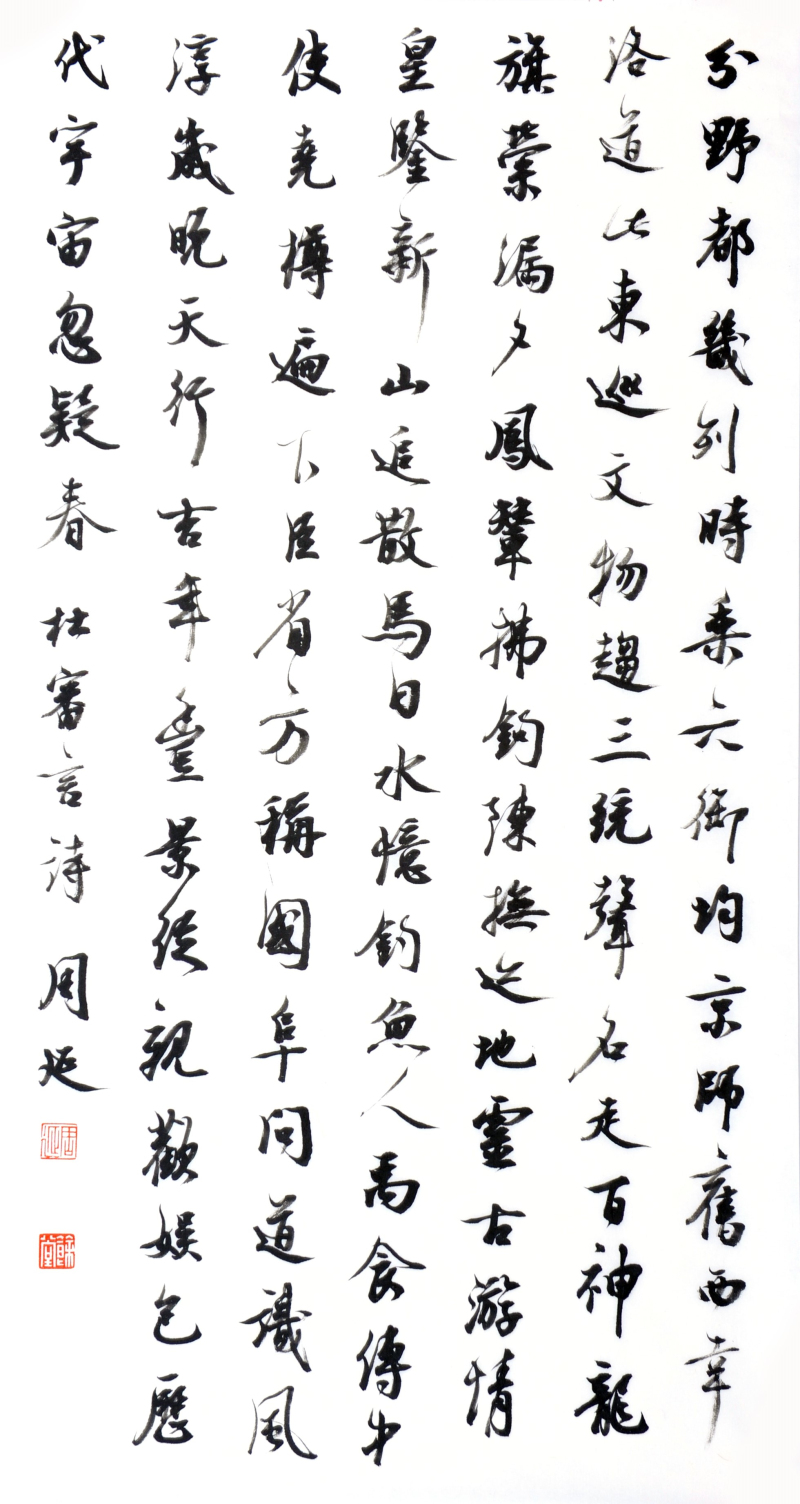 分野都畿列時乘六御均京師舊西幸
洛道此東巡文物趨三統聲名走百神龍
旗縈漏夕鳳輦拂鈎陳撫迹地靈古游情
皇鑒新山追散馬日水憶釣魚人禹食傳中
使堯樽遍下臣省方稱國阜問道識風
淳歲晚天行吉年豐景從親歡娛包歷
代宇宙忽疑春 杜審言詩 周延